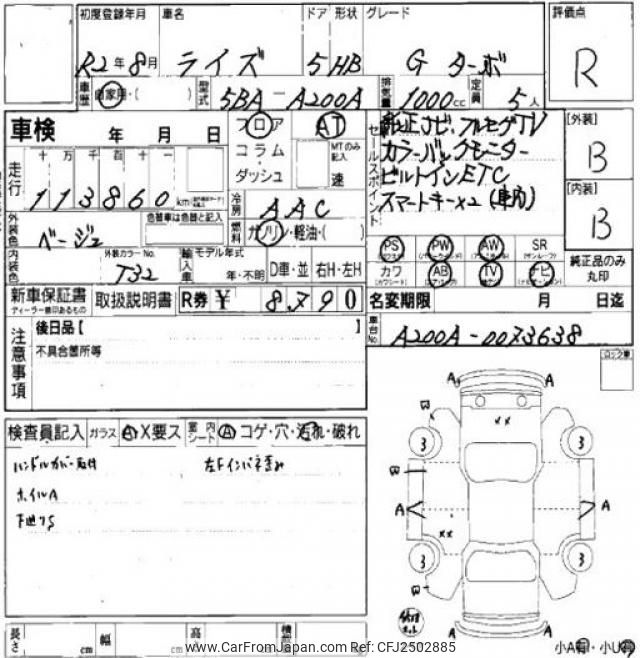 初度登録年月 車名 ドア 形状 グレード 評価点
R2年8月 ライズ 5 HB G ターボ R
車歴 自家用・( ) 型式 5BA-A200A 排気量 1000cc 定員 5人
車検 年 月 日 フロア AT セールスポイント 純正ナビ、フルセグTV [外装]
コラム MTのみ記入 カラーバックモニター B
走行 十万千百十一 ダッシュ 速 ビルトインETC
113860 km 冷房 AAC スマートキー×2 [内装]
外装色 ベージュ 色替車は色替と記入 燃料 ガソリン・軽油・( ) B
内装色 外装カラーNo. T32 輸入車 モデル年式 年・不明 D車・並 右H・左H
PS PW AW SR (サンルーフ) 純正品のみ丸印
カワ AB TV ナビ
新車保証書 取扱説明書 R券 ¥ 8790 名変期限 月 日迄
ディーラー捺印あるもの
注意事項 後日品【 】 車台No. A200A-0073638
不具合箇所等
検査員記入 ガラス A X要ス 室内シート A コゲ・穴・汚れ・破れ
ハンドルカバー取付 左Fインパネ歪み
ホイルA
下廻りS
A A
W ××
3 3
W
A A
××
3 3
W
A A
長さ cm 幅 cm 高さ
小A有・小U有
www.CarFromJapan.com Ref: CFJ2502885